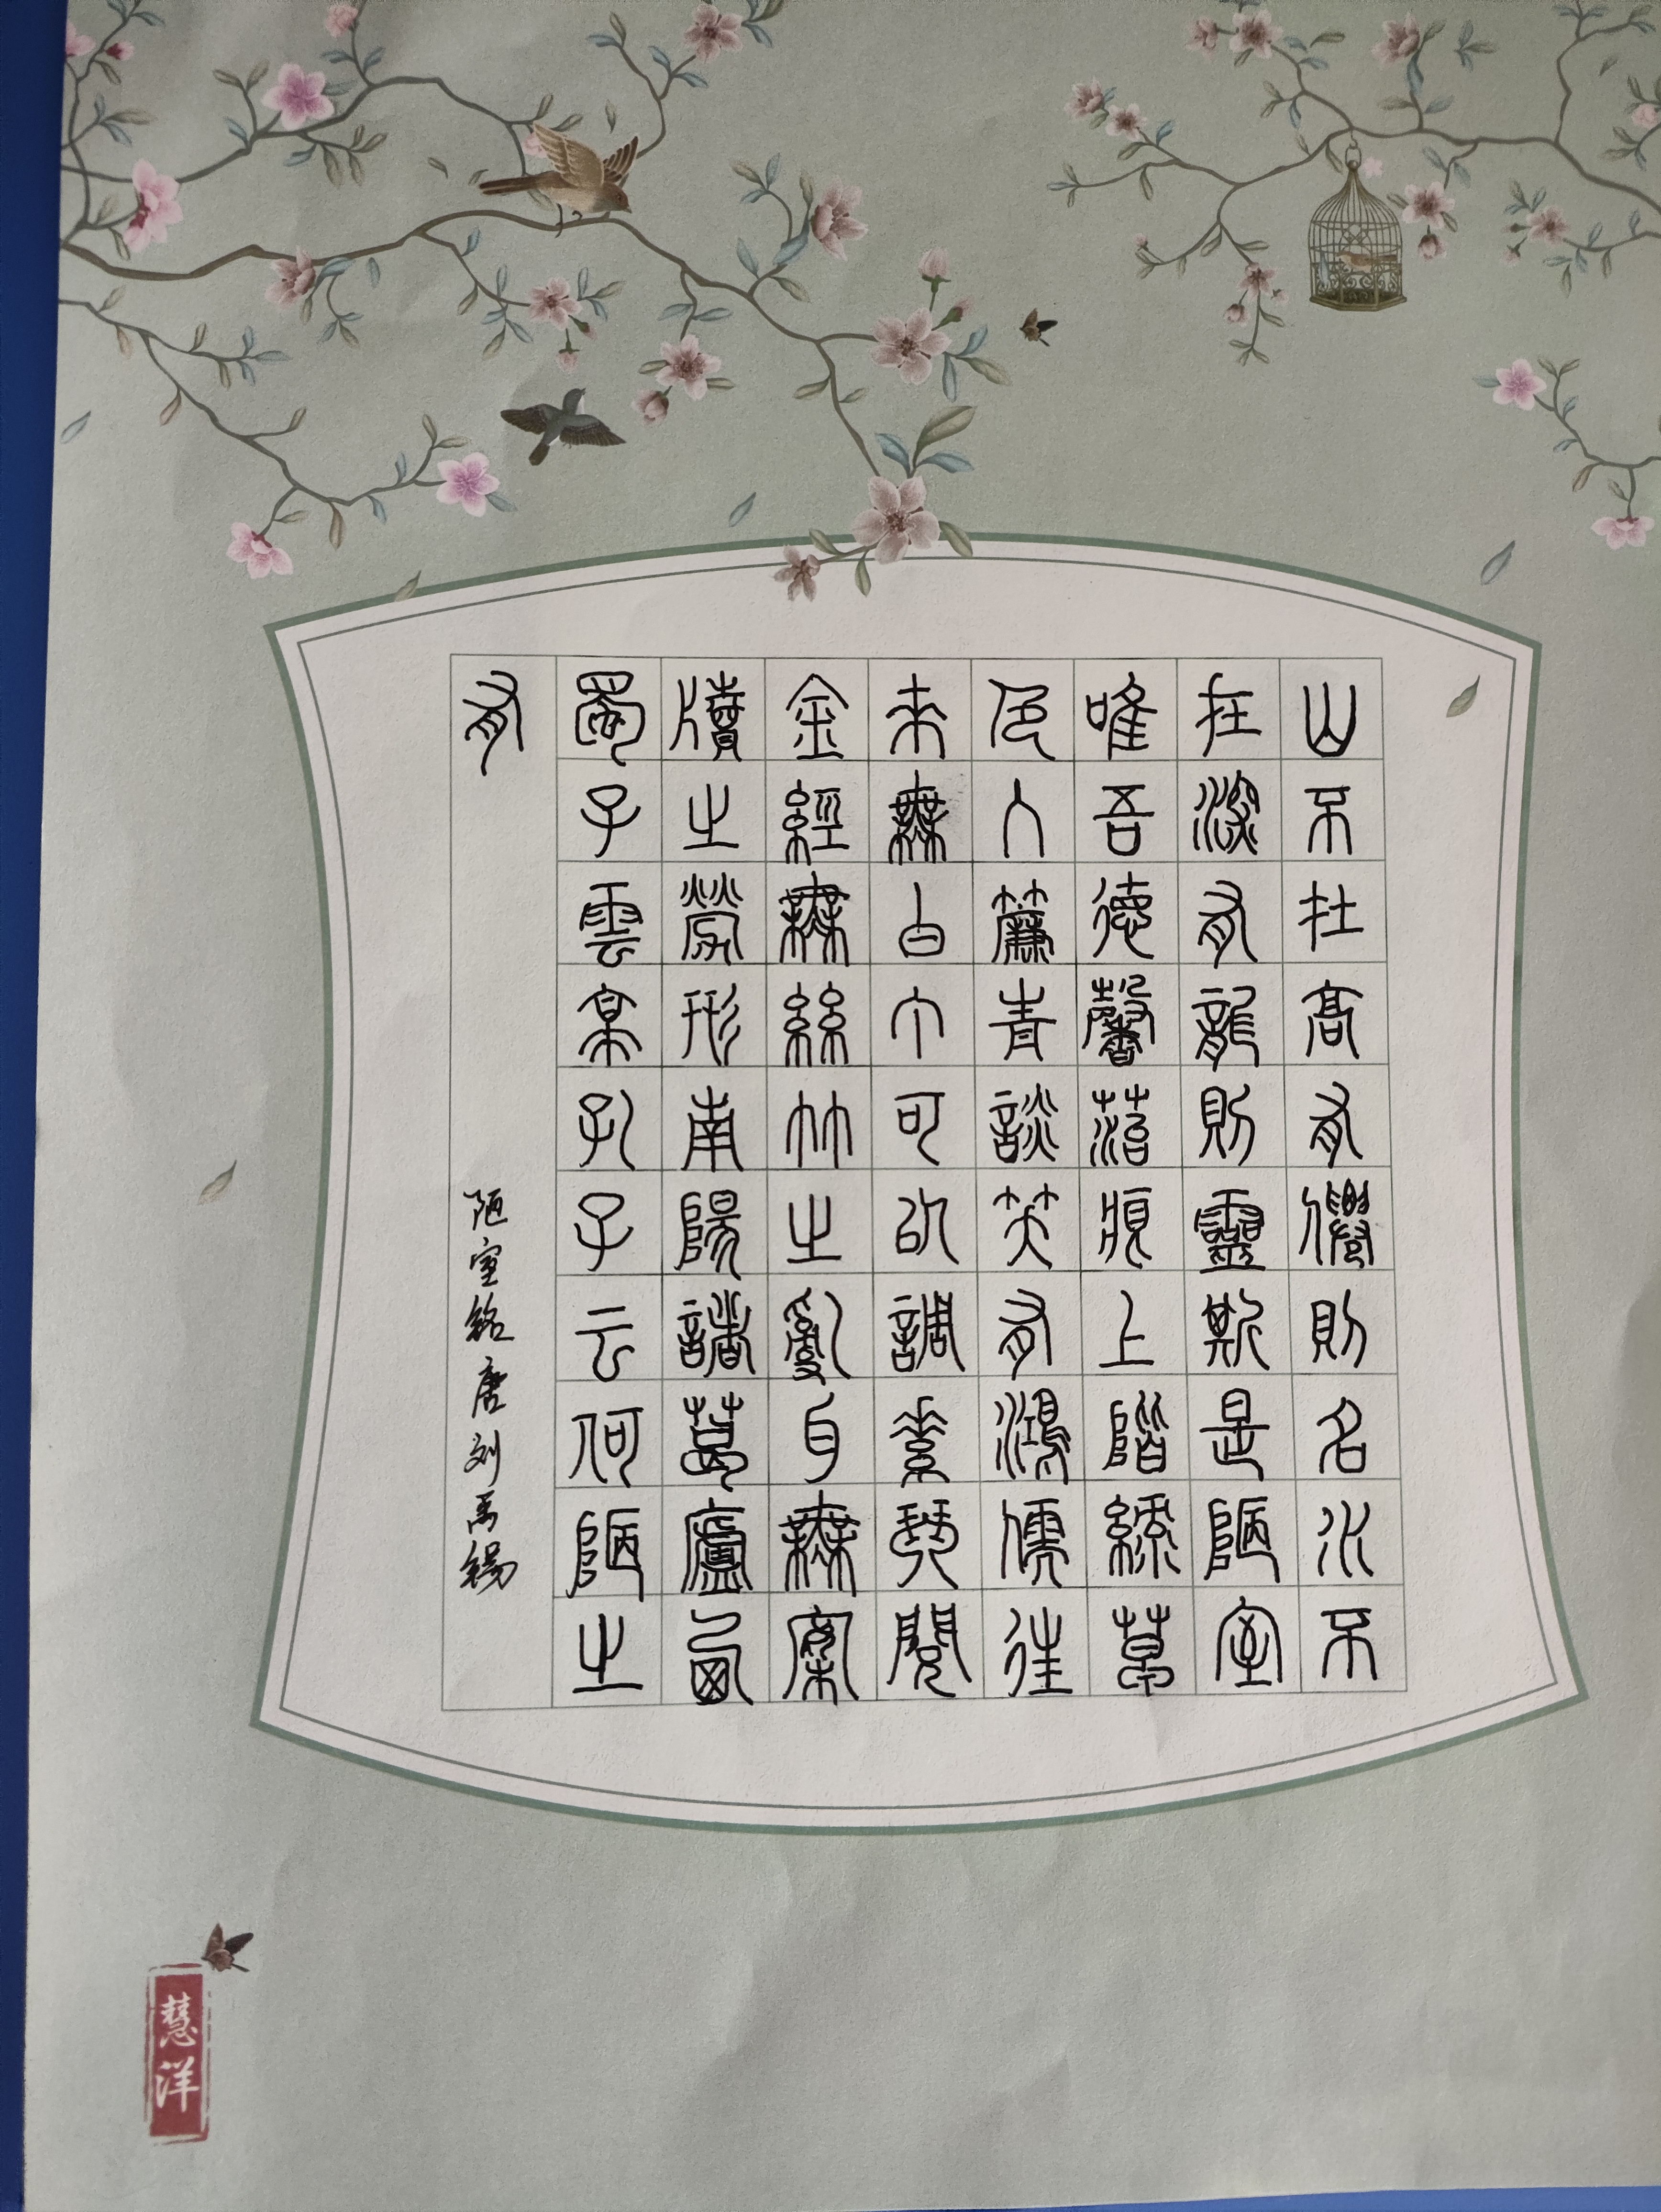 山不在高有僊則名水不
在深有龍則靈斯是陋室
唯吾德馨菭痕上階綠草
色入簾青談笑有鴻儒往
來無白丁可以調素琴閱
金經無絲竹之亂耳無案
牘之勞形南陽諸葛廬西
蜀子雲亭孔子云何陋之
有
陋室铭唐刘禹锡
慧洋